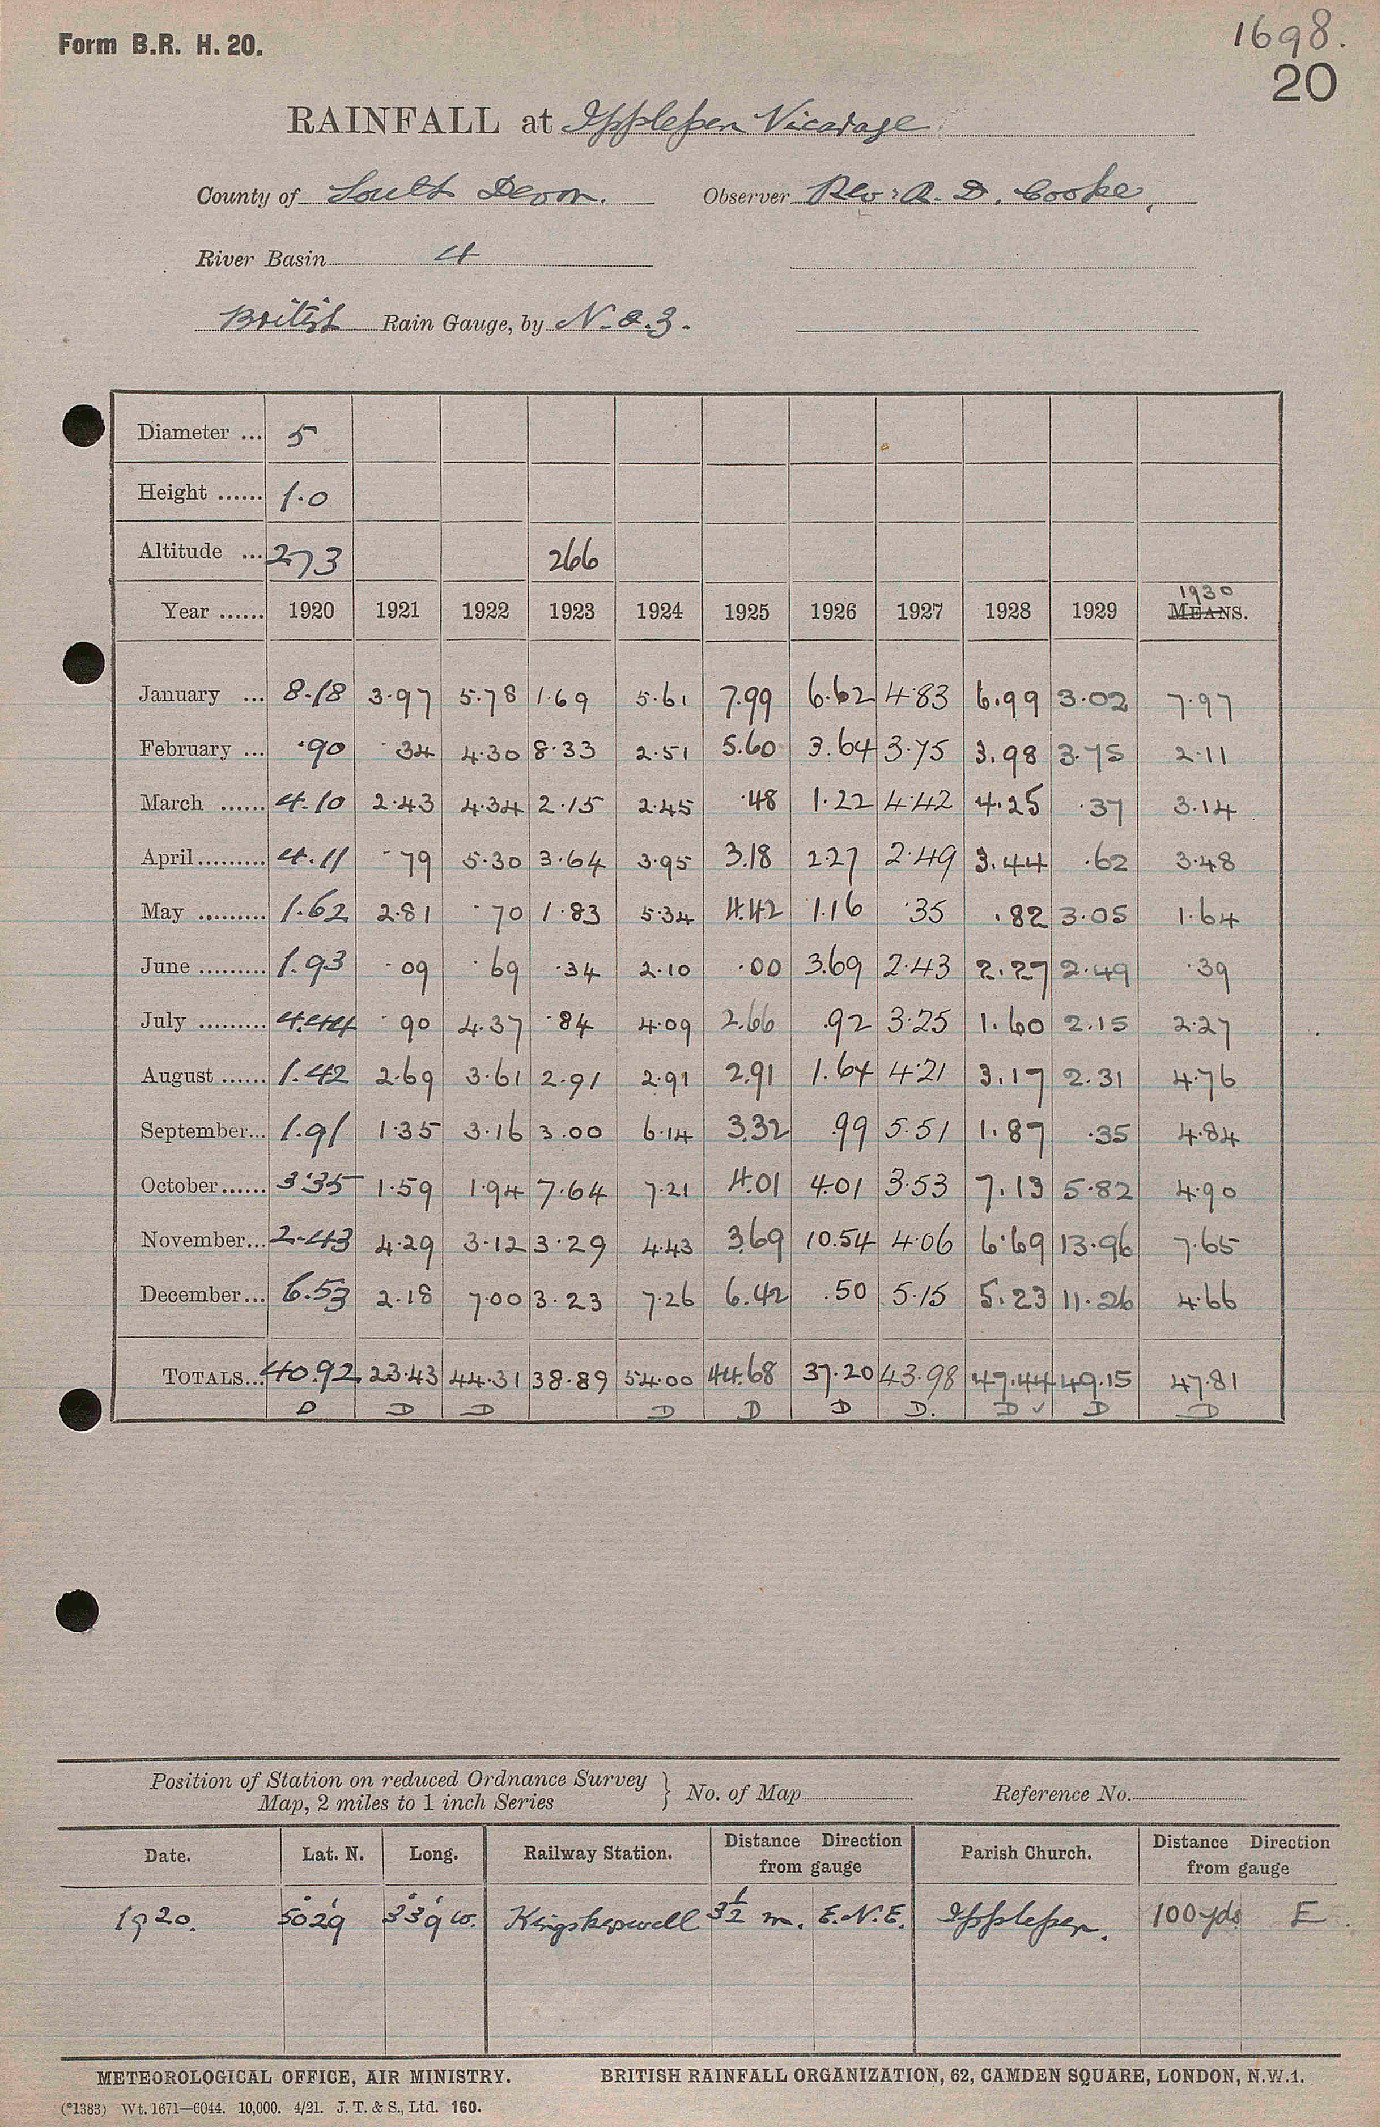 Form B.R. H. 20.
1698.
20
RAINFALL at Ipplepen Vicarage
County of South Devon. Observer Rev: A. D. Cooke,
River Basin 4
British Rain Gauge, by N. & Z.
Diameter ... 5
Height ...... 1.0
Altitude ... 273 266
1930
Year ...... 1920 1921 1922 1923 1924 1925 1926 1927 1928 1929 MEANS.
January ... 8.18 3.97 5.78 1.69 5.61 7.99 6.62 4.83 6.99 3.02 7.97
February ... .90 .34 4.30 8.33 2.51 5.60 3.64 3.75 3.98 3.75 2.11
March ...... 4.10 2.43 4.34 2.15 2.45 .48 1.22 4.42 4.25 .37 3.14
April......... 4.11 .79 5.30 3.64 3.95 3.18 2.27 2.49 3.44 .62 3.48
May ......... 1.62 2.81 .70 1.83 5.34 4.42 1.16 .35 .82 3.05 1.64
June ......... 1.93 .09 .69 .34 2.10 .00 3.69 2.43 2.27 2.49 .39
July ......... 4.44 .90 4.37 .84 4.09 2.66 .92 3.25 1.60 2.15 2.27
August ...... 1.42 2.69 3.61 2.91 2.91 2.91 1.64 4.21 3.17 2.31 4.76
September... 1.91 1.35 3.16 3.00 6.14 3.32 .99 5.51 1.87 .35 4.84
October...... 3.35 1.59 1.94 7.64 7.21 4.01 4.01 3.53 7.13 5.82 4.90
November... 2.43 4.29 3.12 3.29 4.43 3.69 10.54 4.06 6.69 13.96 7.65
December... 6.53 2.18 7.00 3.23 7.26 6.42 .50 5.15 5.23 11.26 4.66
TOTALS... 40.92 23.43 44.31 38.89 54.00 44.68 37.20 43.98 47.44 49.15 47.81
D D D D D D D. D ✓ D D
Position of Station on reduced Ordnance Survey
Map, 2 miles to 1 inch Series } No. of Map Reference No.
Date. Lat. N. Long. Railway Station. Distance Direction from gauge Parish Church. Distance Direction from gauge
1920. 50°29' 3°39' W. Kingskerswell 3½ m. E.N.E. Ipplepen. 100 yds E.
METEOROLOGICAL OFFICE, AIR MINISTRY. BRITISH RAINFALL ORGANIZATION, 62, CAMDEN SQUARE, LONDON, N.W.1.
(*1383) Wt. 1671—6044. 10,000. 4/21. J. T. & S., Ltd. 160.